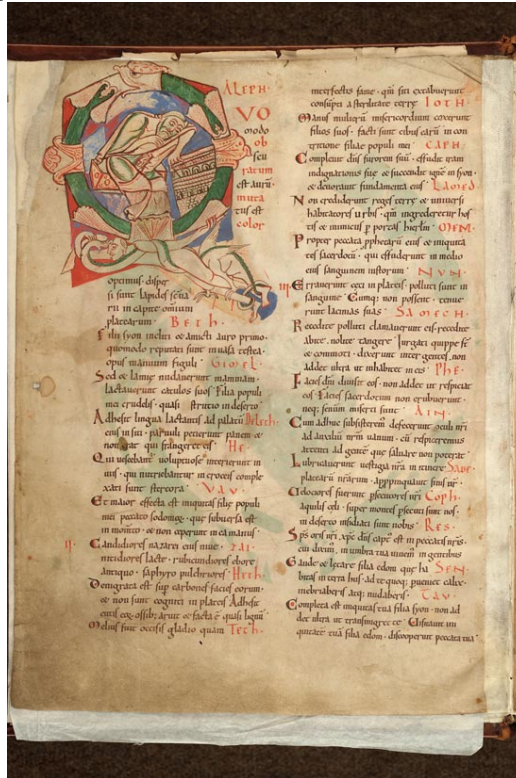 ALEPH.
VO
modo
ob
scu
ratum
est aurũ.
muta
tus est
color
optimus. disper
si sunt lapides scͥua
rii in capite omnium
platearum. BETH.
Filii syon incliti et amicti auro primo.
quomodo reputati sunt in uasa testea.
opus manuum figuli. GIMEL.
Sed et lamię nudauerunt mammam.
lactauerunt catulos suos. Filia populi
mei crudelis. quasi strutio in deserto.
Adhesit lingua lactantis ad palatũ Deleth.
eius in siti. paruuli petierunt panem et
non erat qui frangeret eis. HE.
Qui uescebant uoluptuose interierunt in
uiis. qui nutriebantur in croceis comple
xati sunt stercora. VAV.
Et maior effecta est iniquitas filię populi
mei peccato sodomoꝝ. quę subuersa est
in momto. et non ceperunt in ea manus.
II. Candidiores nazarei eius niue. ZAI.
nitidiores lacte. rubicundiores ebore
antiquo. saphyro pulchriores. Heth.
Denigrata est sup carbones facies eorum.
et non sunt cogniti in plateis. Adhesit
cutis eoꝝ ossib; aruit et facta ē quasi lignũ
Melius fuit occisis gladio quam Teth.
interfectis fame. qm̃ isti extabuerunt
consũpti a sterilitate terrę. IOTH.
Manus mulierũ misericordium coxerunt
filios suos. facti sunt cibus earũ in con
tritione filiae populi mei. CAPH.
Compleuit dn̄s furorem suũ. effudit iram
indignationis suę. et succendit ignē in syon.
et deuorauit fundamenta eius. Lamed.
Non crediderunt reges terrę et uniuersi
habitatores urbis. qm̃ ingrederetur hos
tis et inimicus ꝑ portas hierlm̃. MEM.
Propter peccata ꝓphetarũ eius et iniquita
tes sacerdotũ. qui effuderunt in medio
eius sanguinem iustorum. NUN.
III. Errauerunt ceci in plateis. polluti sunt in
sanguine. Cumq; non possent. tenue
runt lacinias suas. SAMECH.
Recedite polluti clamauerunt eis. recedite
abite. nolite tangere. Iurgati quippe sr̃
et commoti. dixerunt inter gentes. non
addet ultra ut inhabitet in eis. PHE.
Facies dn̄i diuisit eos. non addet ut respiciat
eos. Facies sacerdotum non erubuerunt.
neq; senum miserti sunt. AIN.
Cum adhuc subsisterem. defecerunt oculi nr̃i
ad auxiliũ nr̃m uanum. cũ respiceremus
attenti ad gentē quę saluare non poterat.
Lubricauerunt uestigia nr̃a in itinere Sade.
platearũ nr̃arum. appropinquauit finis nr̃.
Velociores fuerunt ꝑsecutores nr̃i Coph.
aquilis cęli. super montes ꝑsecuti sunt nos.
in deserto insidiati sunt nobis. RES.
Sp̄s oris nr̃i. xp̄c dn̄s capt̾ est in peccatis nr̃is.
cui dixim̾. in umbra tua uiuem̾ in gentibus.
Gaude et lętare filia edom quę ha SEN.
bitas in terra hus. ad te quoq; pueniet calix.
inebriaberis atq; nudaberis. TAV.
Completa est iniquitas tua filia syon. non ad
det ultra ut transmigret te. Uisitauit ini
quitatē tuã filia edom. discooperuit peccata tua.